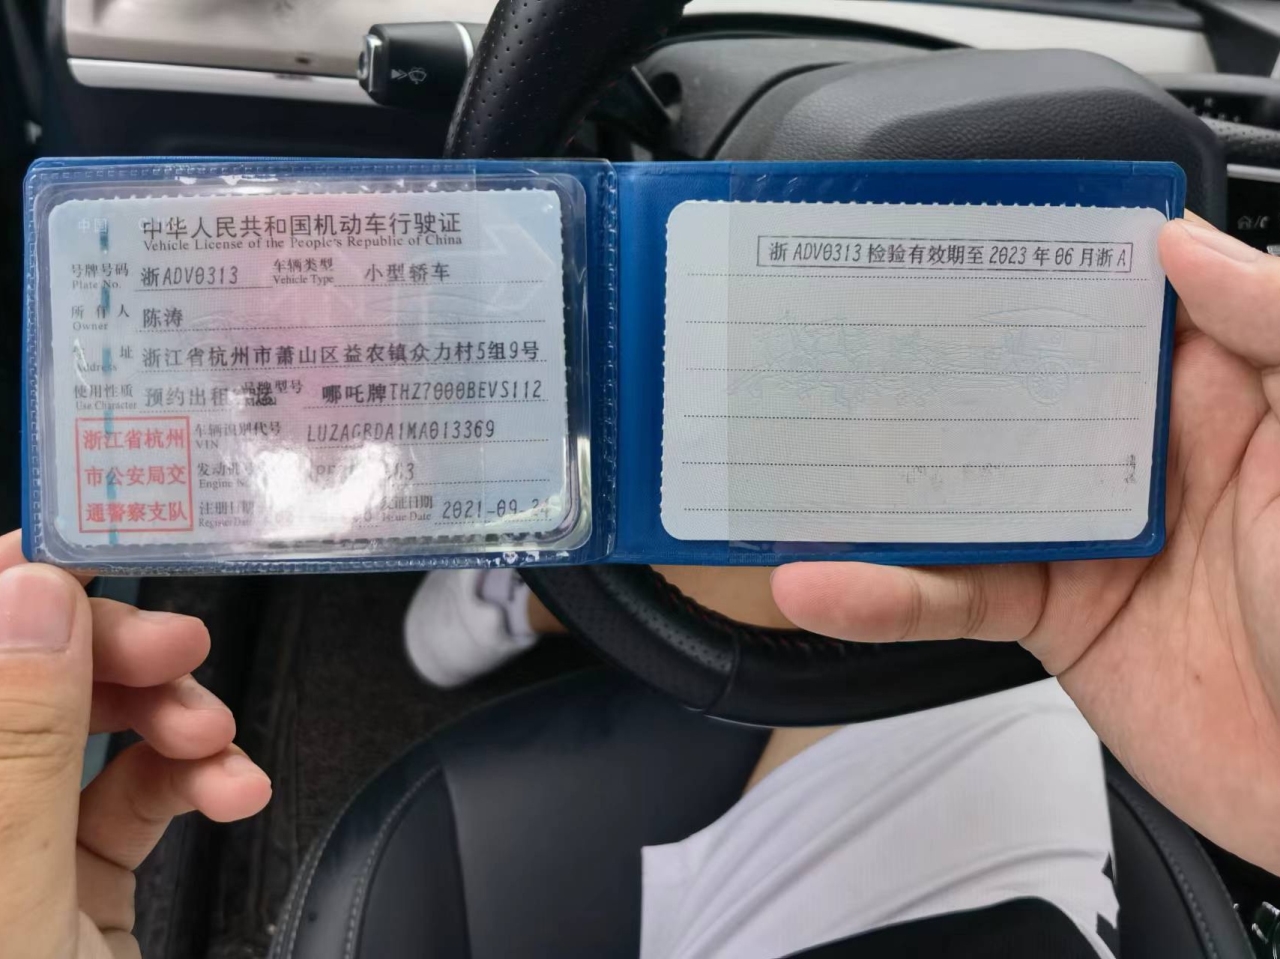 中国
中华人民共和国机动车行驶证
Vehicle License of the People's Republic of China
号牌号码 浙ADV0313 车辆类型 小型轿车
Plate No. Vehicle Type
所有人 陈涛
Owner
址 浙江省杭州市萧山区益农镇众力村5组9号
Address
使用性质 预约出租 品牌型号 哪吒牌THZ7000BEVS112
Use Character
浙江省杭州
市公安局交
通警察支队
车辆识别代号 LUZAGBDA1MA013369
VIN
发动机号
Engine No.
注册日期 发证日期 2021-09-24
Register Date Issue Date
浙ADV0313检验有效期至2023年06月浙A